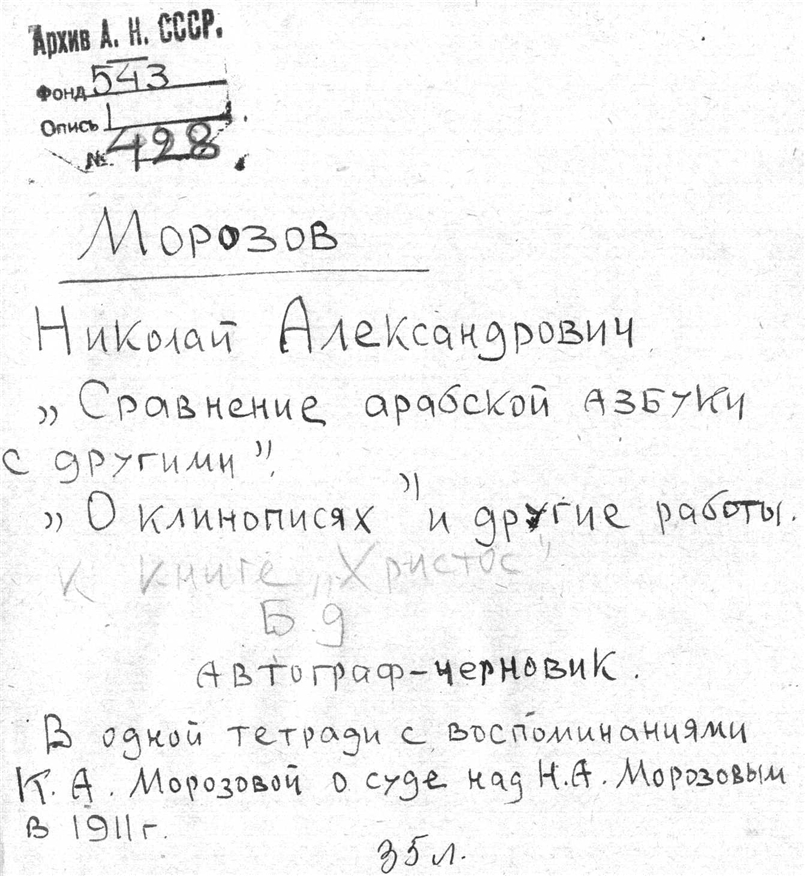 Архив А. Н. СССР.
Фонд 543
Опись 1
№. 428
Морозов
Николай Александрович
„Сравнение арабской азбуки
с другими".
„О клинописях" и другие работы.
К книге „Христос"
Б д
Автограф-черновик.
В одной тетради с воспоминаниями
К. А. Морозовой о суде над Н.А. Морозовым
в 1911 г.
35 л.